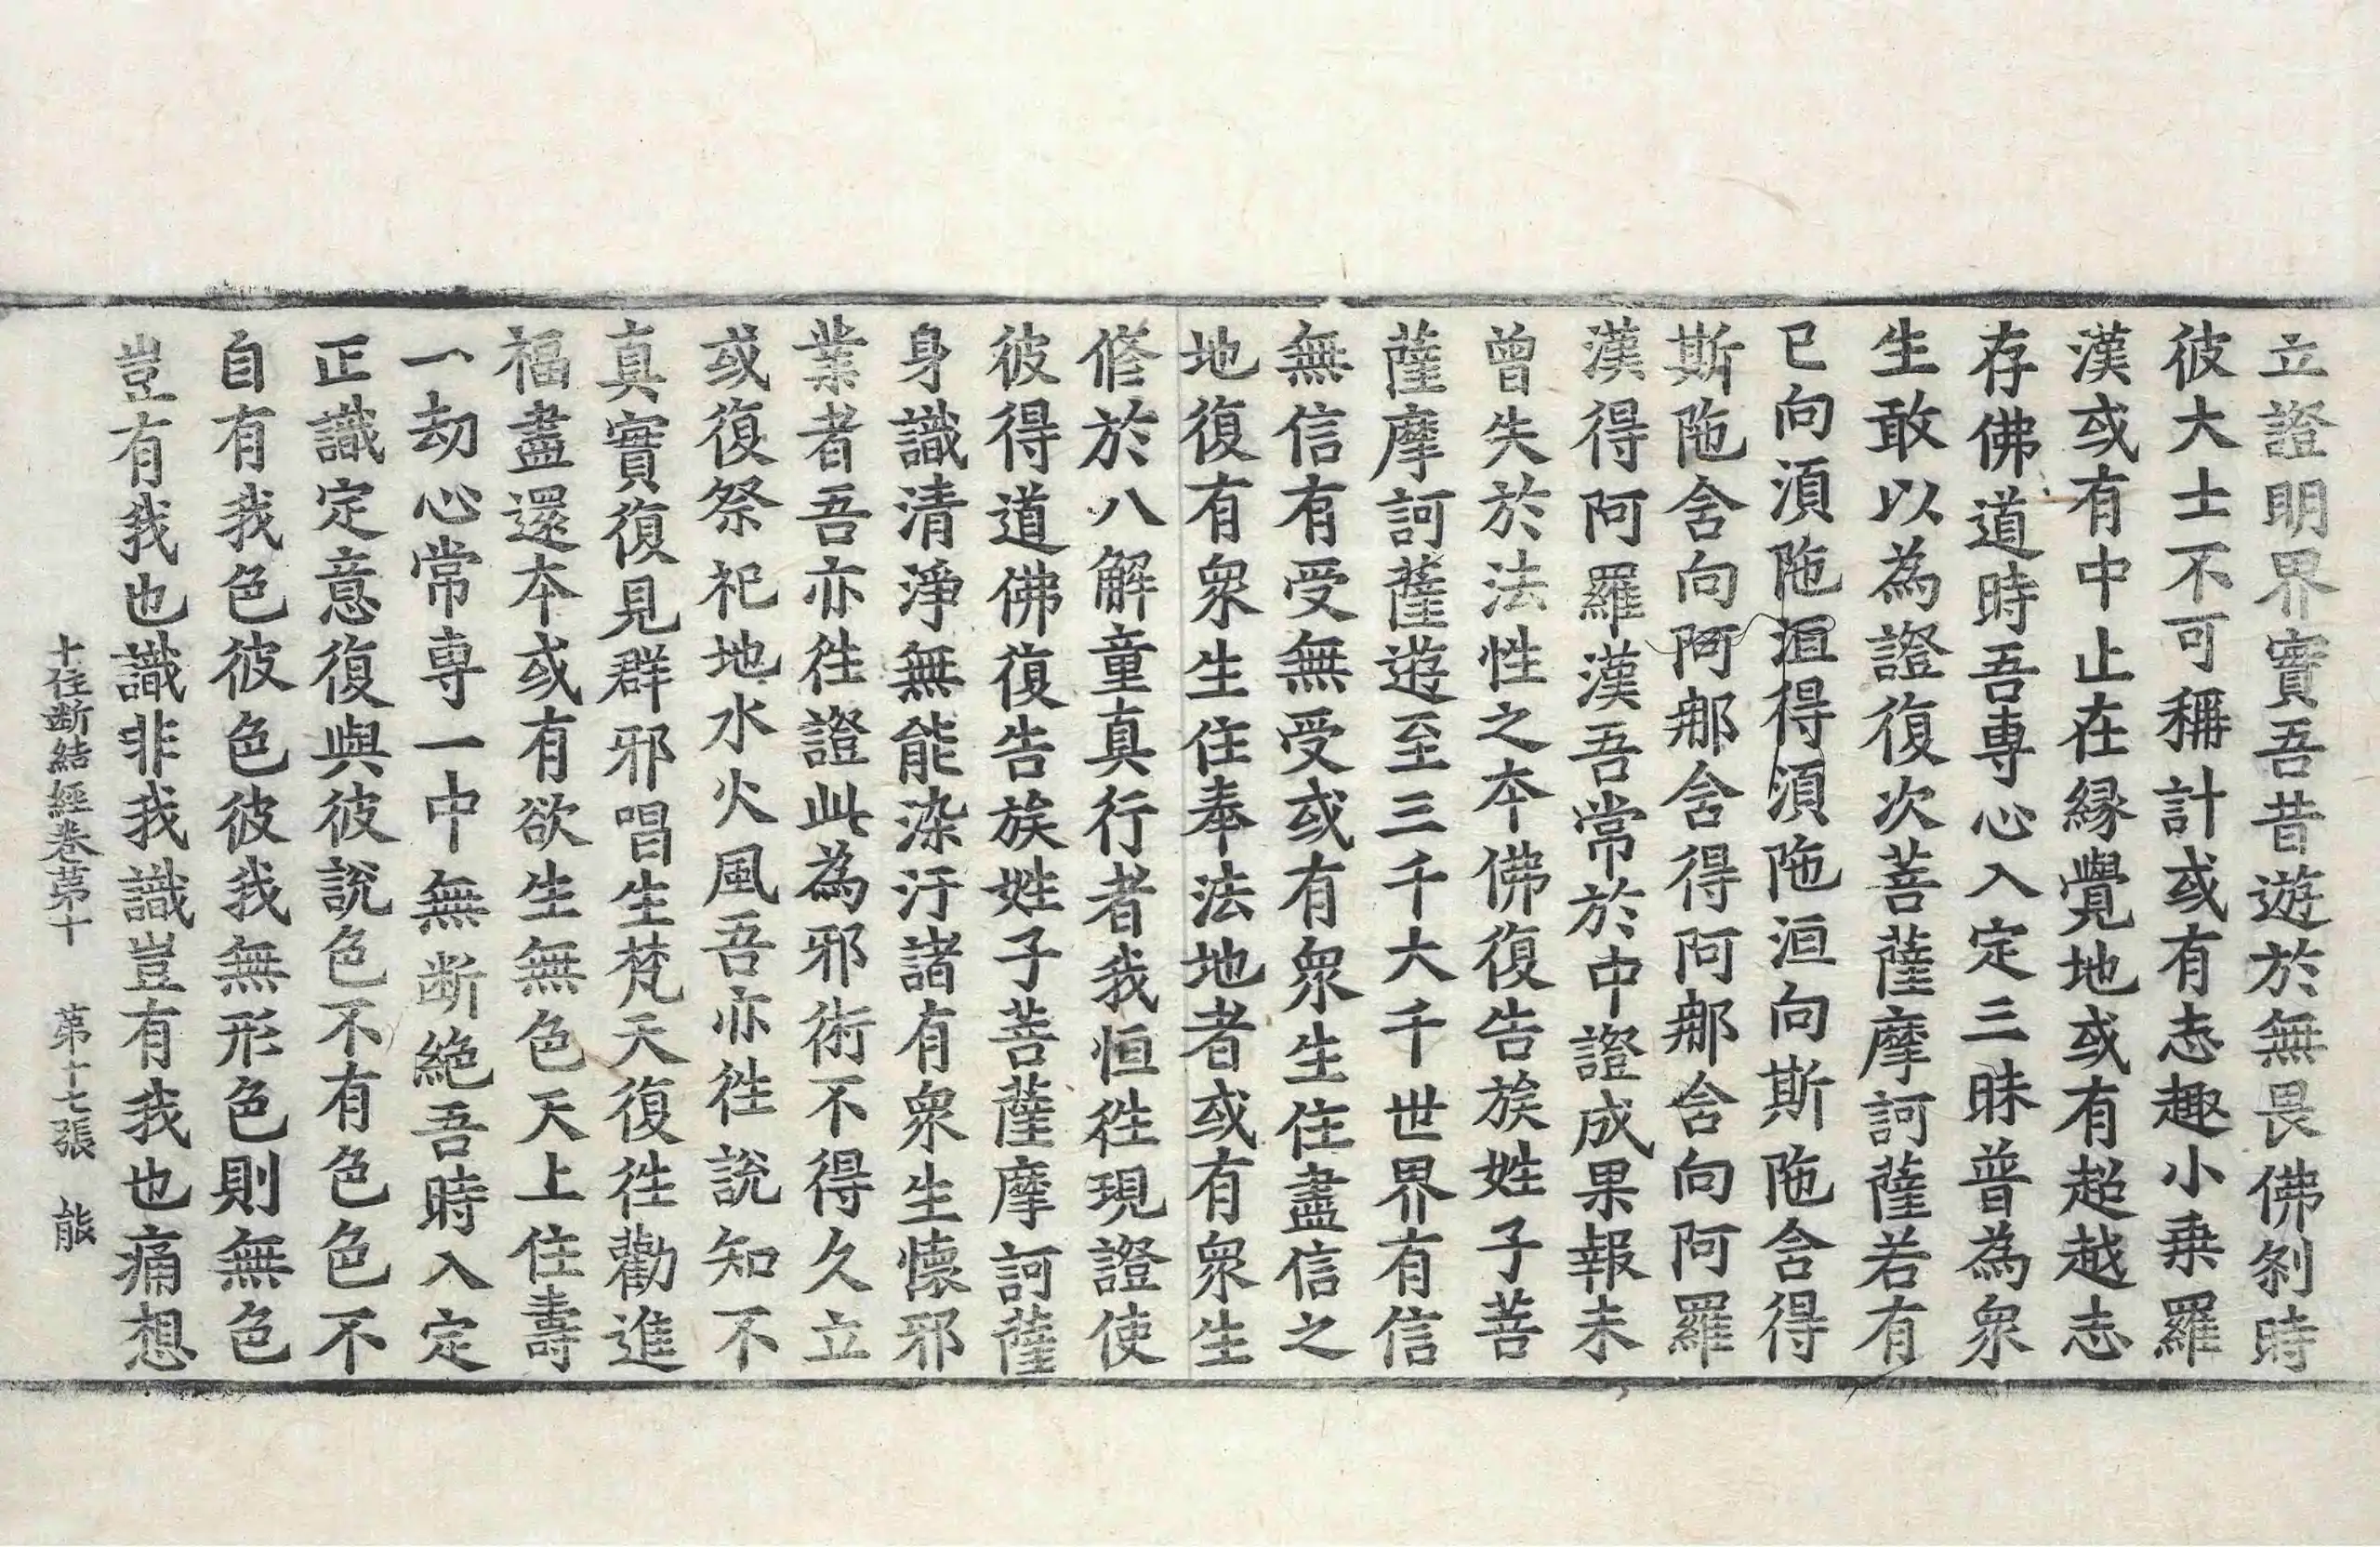 立證明界實吾昔遊於無畏佛剎時
彼大士不可稱計或有志趣小乗羅
漢或有中止在縁覺地或有超越志
存佛道時吾專心入定三昧普為衆
生敢以為證復次菩薩摩訶薩若有
已向湏陁洹得湏陁洹向斯陁含得
斯陁含向阿那含得阿那含向阿羅
漢得阿羅漢吾常於中證成果報未
曾失於法性之本佛復告族姓子菩
薩摩訶薩遊至三千大千世界有信
無信有受無受或有衆生住盡信之
地復有衆生住奉法地者或有衆生
修於八解童真行者我恒往現證使
彼得道佛復告族姓子菩薩摩訶薩
身識清淨無能染汙諸有衆生懷邪
業者吾亦往證此為邪術不得久立
或復祭祀地水火風吾亦往說知不
真實復見群邪唱生梵天復往勸進
福盡還本或有欲生無色天上住壽
一劫心常専一中無断絶吾時入定
正識定意復與彼說色不有色色不
自有我色彼色彼我無形色則無色
豈有我也識非我識豈有我也痛想
十住断結經卷第十　第十七張　能